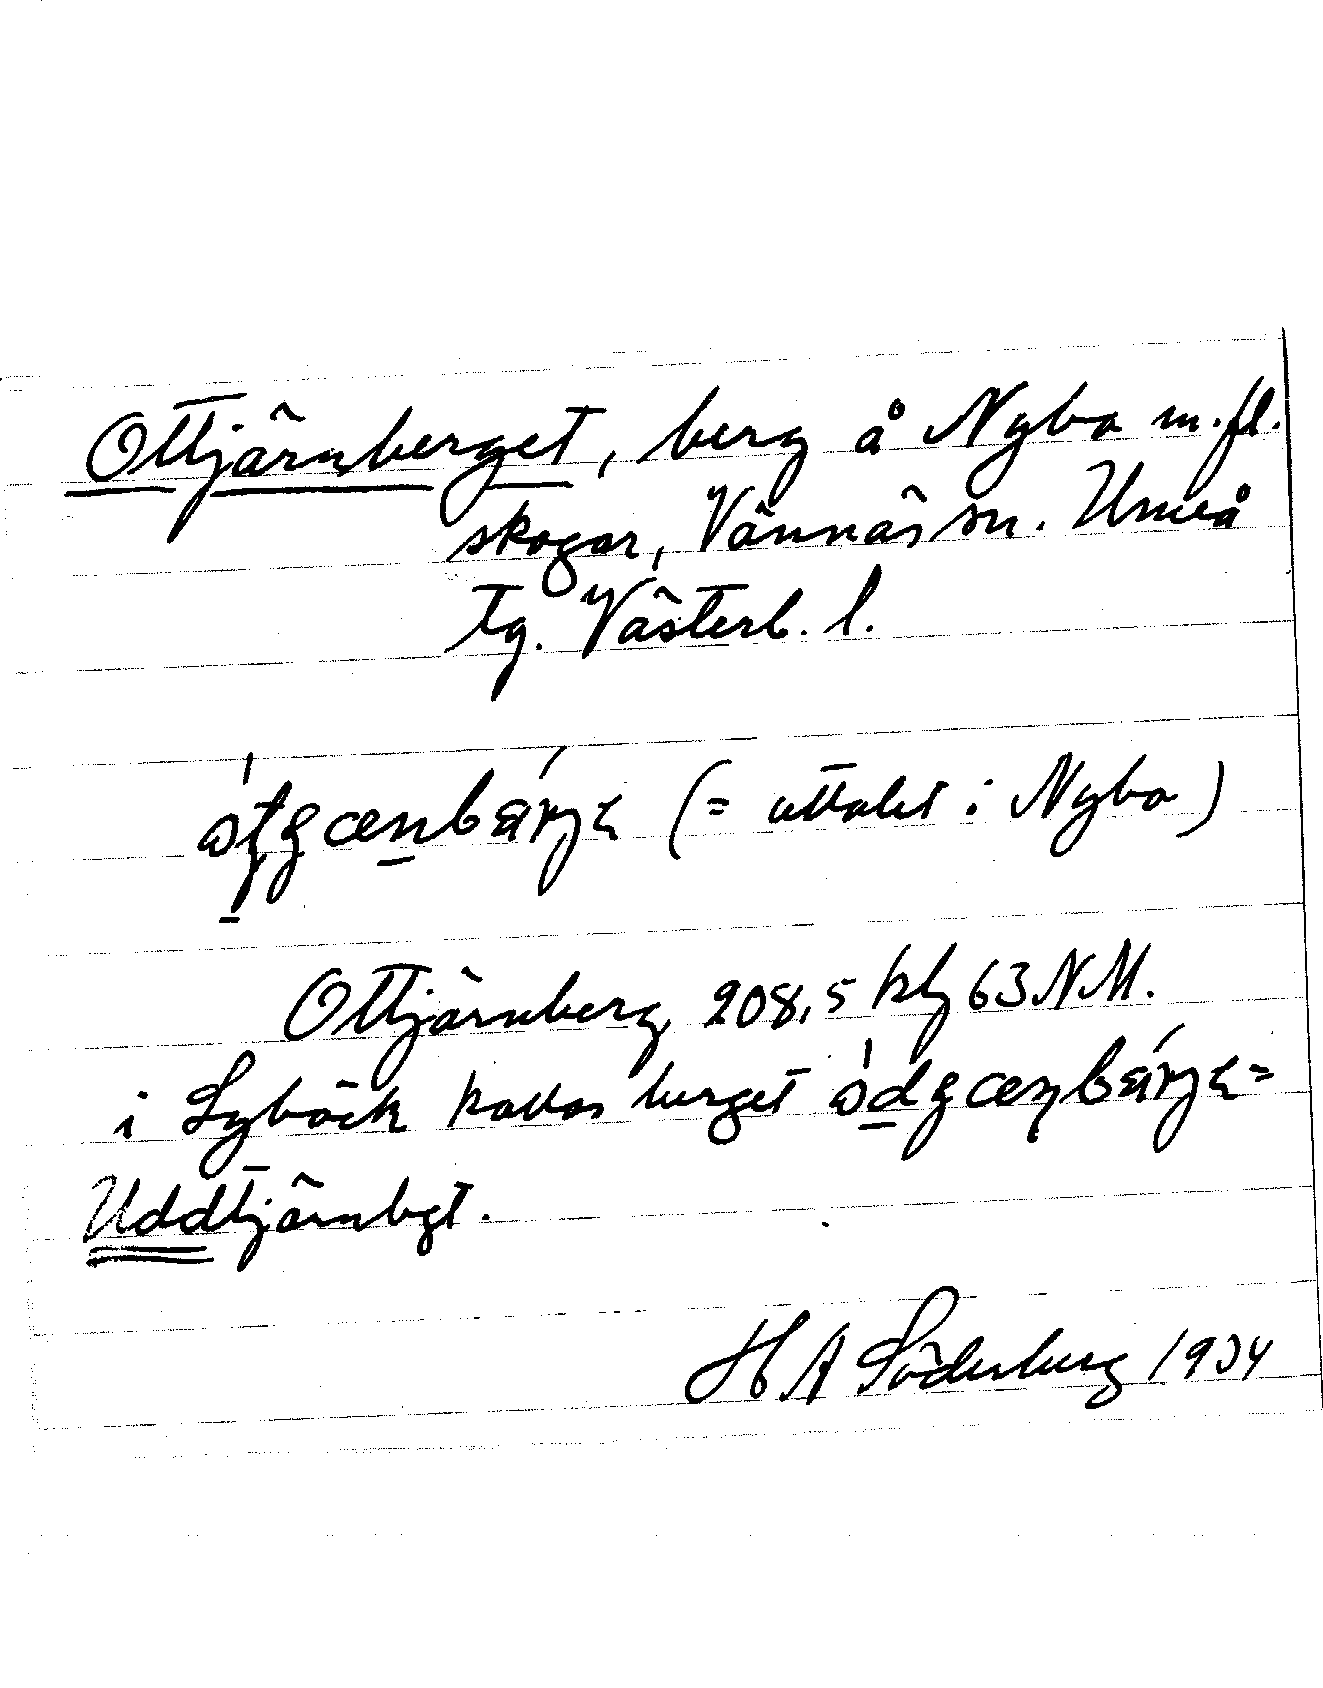 Ottjärnberget, berg å Nybo m.fl.
skogar, Vännäs sn. Umeå
tg. Västerb. l.
(= uttalet i Nybo)
Ottjärnberg 208,5 kbl 63 NM.
i Sybäck kallas berget
Uddtjärnbgt.
H A Söderberg 1934